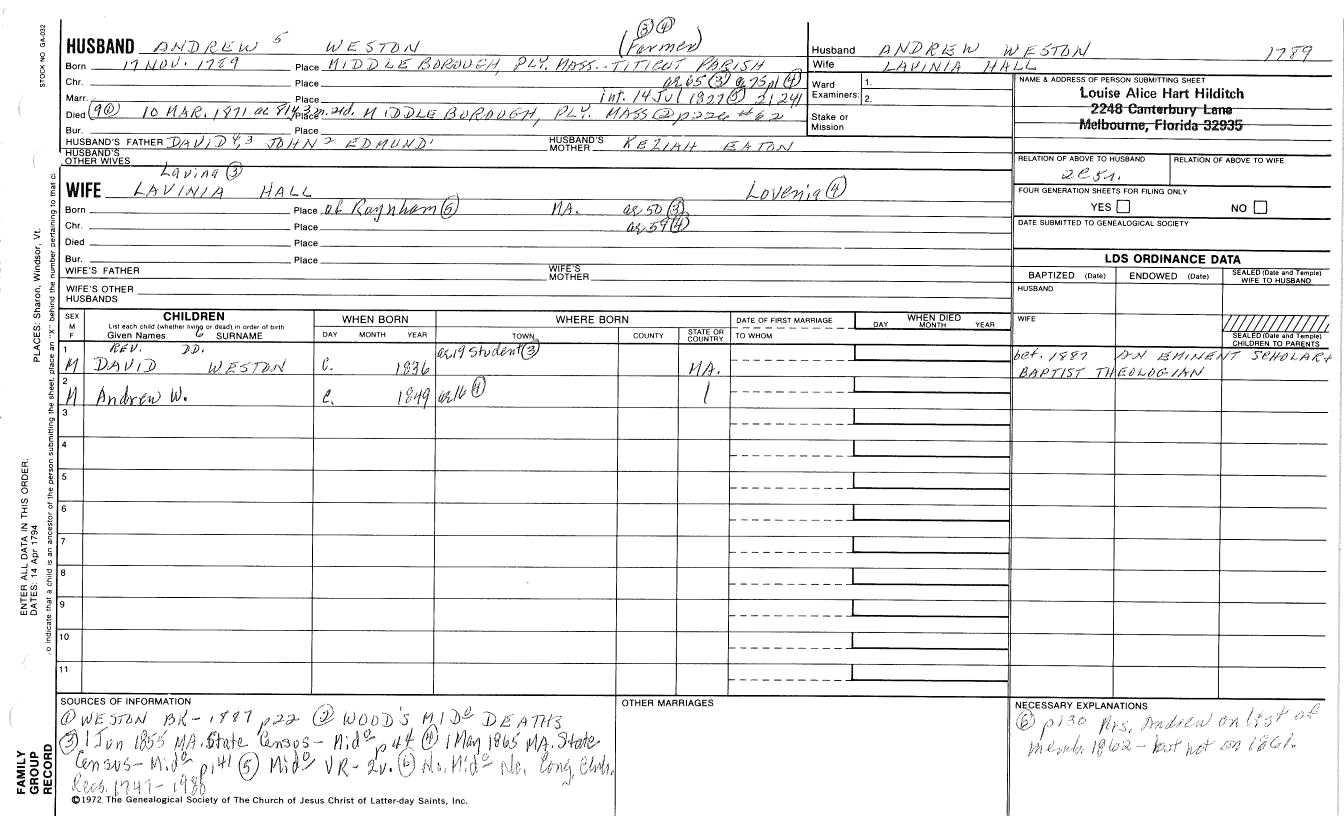 STOCK NO GA-032
PLACES: Sharon, Windsor, Vt.
ENTER ALL DATA IN THIS ORDER:
DATES: 14 Apr 1794
to indicate that a child is an ancestor of the person submitting the sheet, place an "X" behind the number pertaining to that c
FAMILY GROUP RECORD
③ ④
HUSBAND ANDREW 5 WESTON (Farmer)
Born 17 NOV. 1789 Place MIDDLEBOROUGH, PLY. MASS. - TITICUT PARISH
Chr. Place ae 65 ③ ae 75 p1 ④
Marr. Place int. 14 Jul 1827 ⑤ 2/241
Died 10 MAR. 1871 Place MIDDLEBOROUGH, PLY. MASS ② p226 #62
Bur.
HUSBAND'S FATHER DAVID 4,3 JOHN 2 EDMUND 1 HUSBAND'S MOTHER KEZIAH EATON
HUSBAND'S OTHER WIVES
Lavina ③
WIFE LAVINIA HALL Lovenia ④
Born Place of Raynham ⑤ MA. ae 50 ③
Chr. Place ae 59 ④
Died Place
Bur. Place
WIFE'S FATHER WIFE'S MOTHER
WIFE'S OTHER HUSBANDS
Husband ANDREW WESTON 1789
Wife LAVINIA HALL
Ward 1.
Examiners: 2.
Stake or Mission
NAME & ADDRESS OF PERSON SUBMITTING SHEET
Louise Alice Hart Hilditch
2248 Canterbury Lane
Melbourne, Florida 32935
RELATION OF ABOVE TO HUSBAND RELATION OF ABOVE TO WIFE
2C5r.
FOUR GENERATION SHEETS FOR FILING ONLY
YES NO
DATE SUBMITTED TO GENEALOGICAL SOCIETY
LDS ORDINANCE DATA
BAPTIZED (Date) ENDOWED (Date) SEALED (Date and Temple) WIFE TO HUSBAND
HUSBAND
WIFE
SEALED (Date and Temple) CHILDREN TO PARENTS
SEX M F
CHILDREN
List each child (whether living or dead) in order of birth
Given Names 6 SURNAME
WHEN BORN
DAY MONTH YEAR
WHERE BORN
TOWN COUNTY STATE OR COUNTRY
DATE OF FIRST MARRIAGE
TO WHOM
WHEN DIED
DAY MONTH YEAR
REV. DD.
1 M DAVID WESTON C. 1836 ae 19 student ③ MA. bef. 1887 AN EMINENT SCHOLAR +
BAPTIST THEOLOGIAN
2 M Andrew W. C. 1849 ae 16 ④
3
4
5
6
7
8
9
10
11
SOURCES OF INFORMATION
① WESTON BR - 1887 p22 ② WOOD'S MIDo DEATHS
③ 1 Jun 1855 MA. State Census - Mido p44 ④ 1 May 1865 MA. State
Census - Mido p141 ⑤ Mido VR - 2v. ⑥ No. Mido No. Cong. Chch.
Recs. 1747-1986
OTHER MARRIAGES
NECESSARY EXPLANATIONS
⑥ p130 Mrs. Andrew on list of
memb. 1862 - but not on 1861.
©1972 The Genealogical Society of The Church of Jesus Christ of Latter-day Saints, Inc.